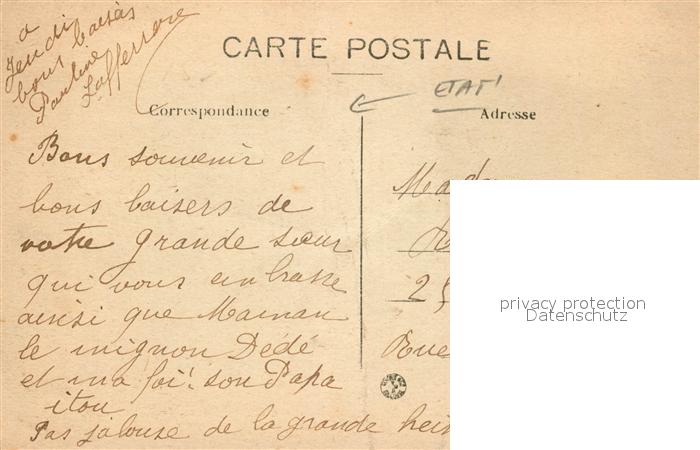 à
Jeudi
bons baisers
Pauline
Lafferrere
CARTE POSTALE
ETAT!
Correspondance
Adresse
Bons souvenir et
bons baisers de
votre grande sœur
qui vous embrasse
ainsi que Maman
le mignon Dédé
et ma foi! son Papa
itou
Pas jalouse de la grande
25
Rue
privacy protection
Datenschutz